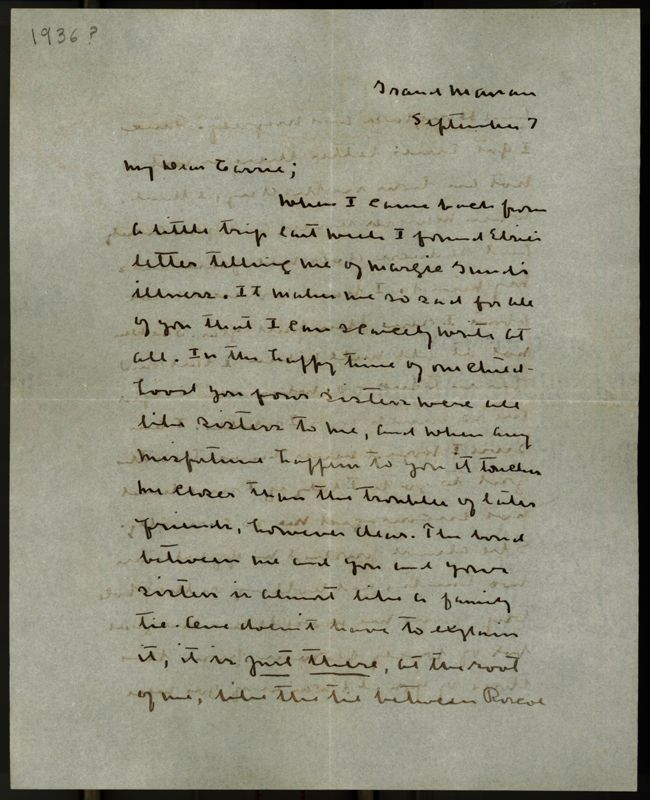 1936?
Grand Manan
September 7
My Dear Carrie;
When I came back from
a little trip last week I found Elsie's
letter telling me of Margie Gund's
illness. It makes me so sad for all
of you that I can scarcely write at
all. In the happy time of our child-
hood you four sisters were all
like sisters to me, and when any
misfortune happens to you it touches
me closer than the troubles of later
friends, however dear. The bond
between me and you and your
sisters is almost like a family
tie. One doesn't have to explain
it, it is just there, at the root
of me, like the tie between Roscoe